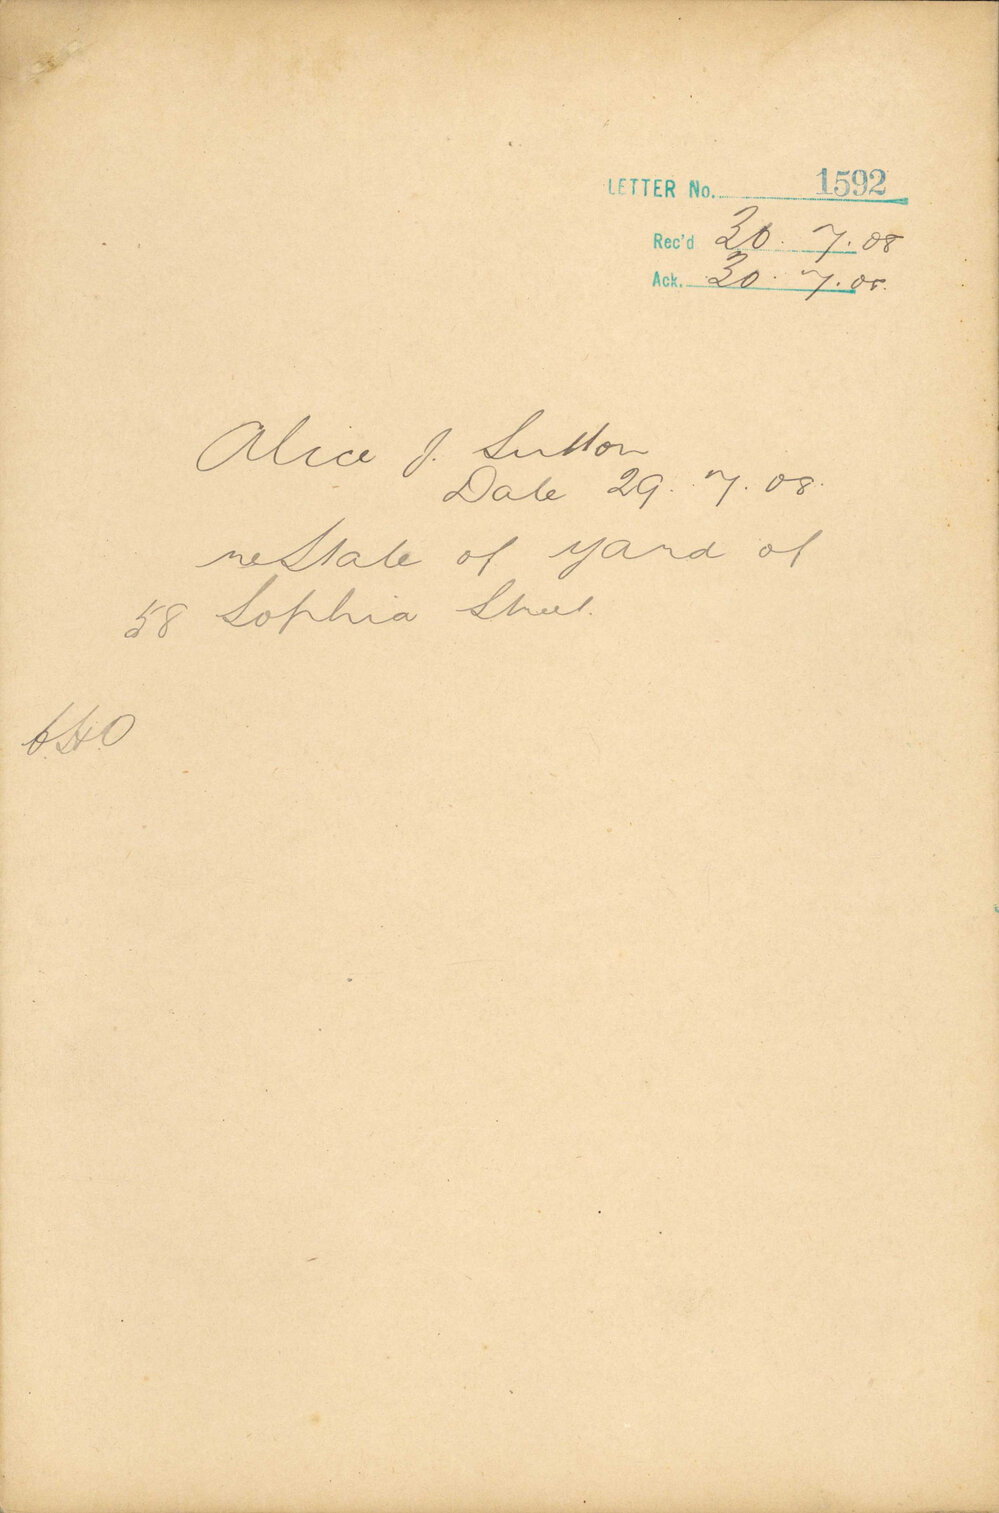 LETTER No. 1592
Rec'd 30. 7. 08
Ack. 30. 7. 08.
Alice J. Sutton
Date 29. 7. 08.
re State of yard of
58 Sophia Street.